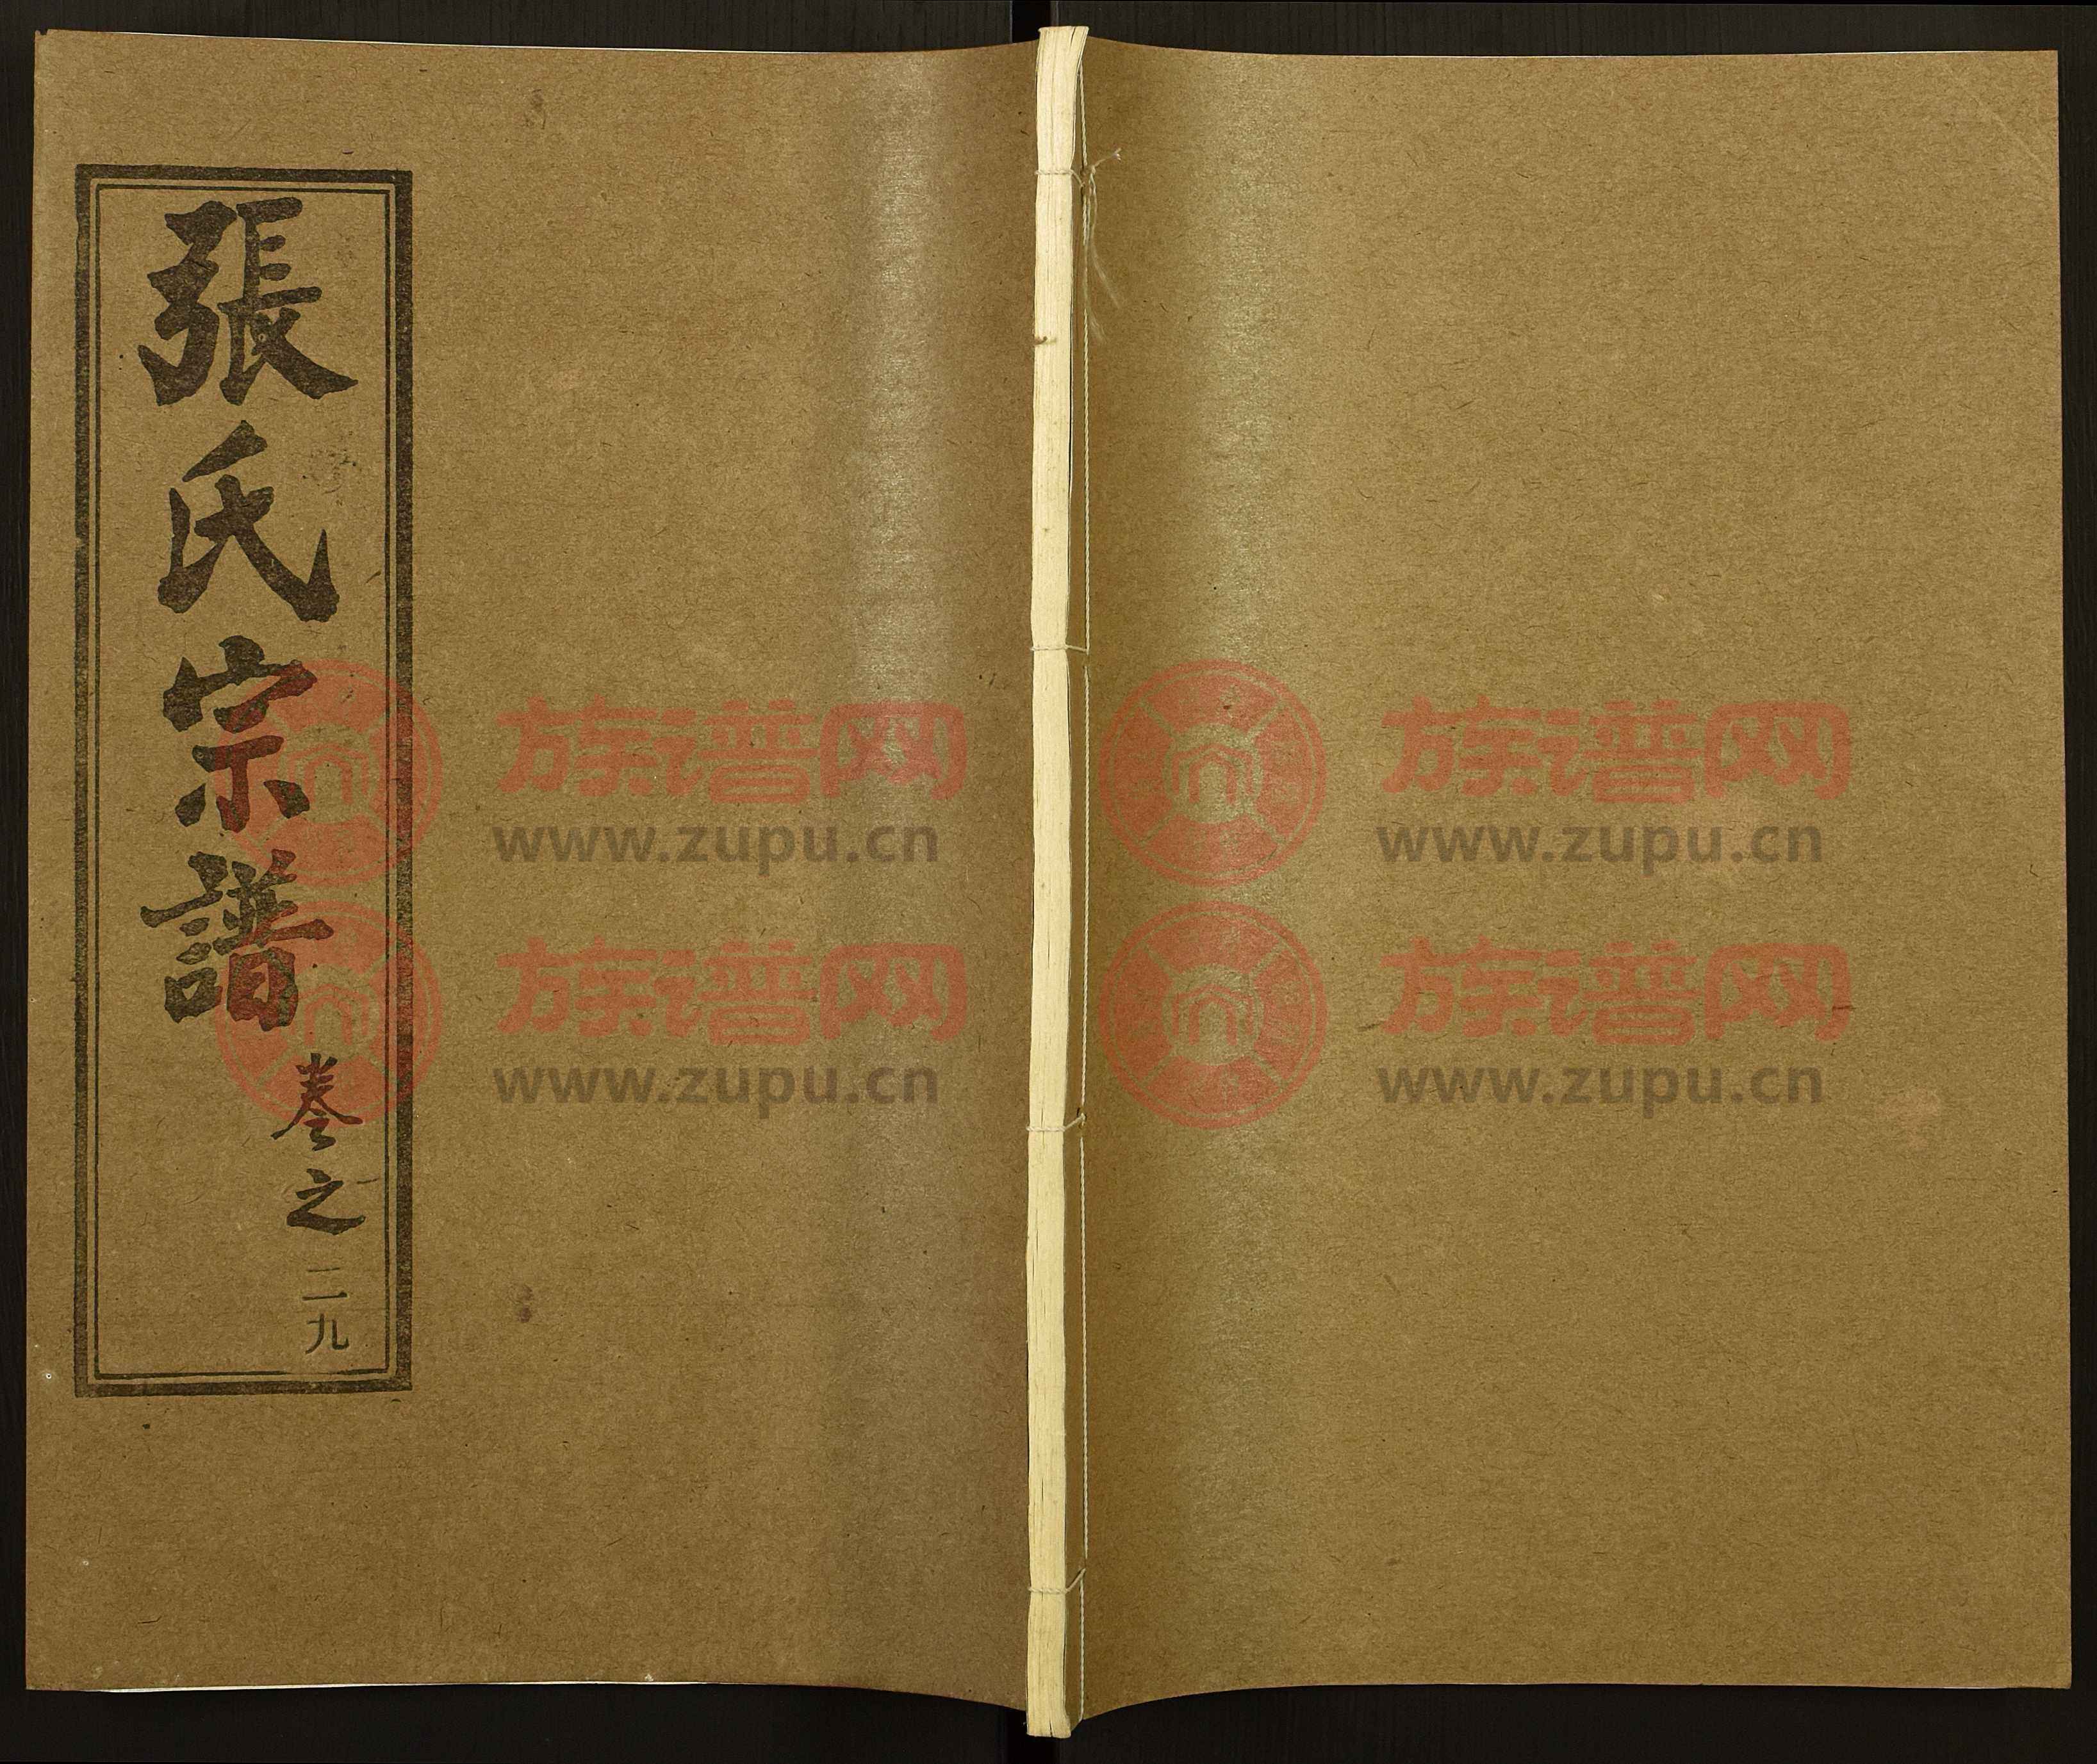 張氏宗譜
卷之二九
族谱网
www.zupu.cn
族谱网
www.zupu.cn
族谱网
www.zupu.cn
族谱网
www.zupu.cn